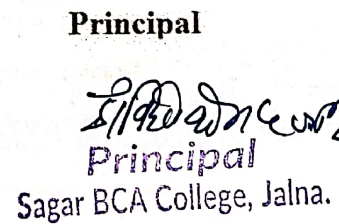 Principal
Principal
Sagar BCA College, Jalna.